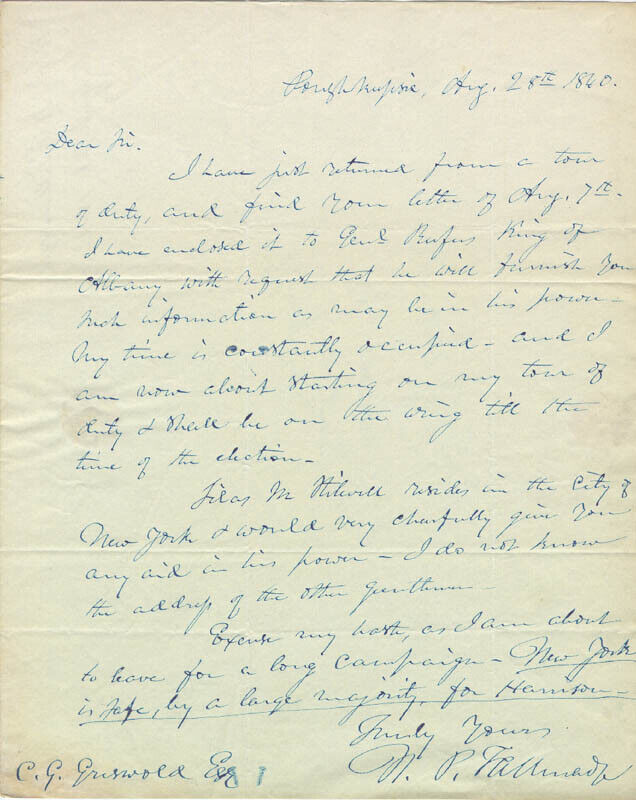 Poughkeepsie, Aug. 28th 1840.
Dear Sir.
I have just returned from a tour
of duty, and find your letter of Aug. 7th.
I have enclosed it to Genl Rufus King of
Albany with request that he will furnish you
such information as may be in his power—
My time is constantly occupied— and I
am now about starting on my tour of
duty & shall be on the wing till the
time of the election—
Silas M Stilwell resides in the City of
New York & would very cheerfully give you
any aid in his power— I do not know
the address of the other gentlemen—
Excuse my haste, as I am about
to leave for a long campaign— New York
is safe, by a large majority, for Harrison—
Truly Yours
N. P. Tallmadge
C. G. Griswold Esq